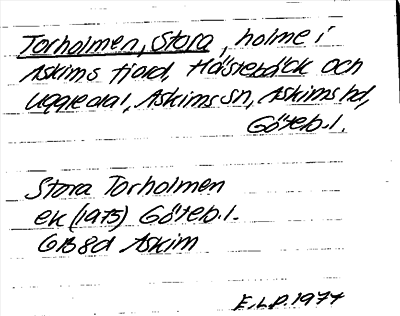 Torholmen, Stora, holme i
Askims fjord, Hästebäck och
Uggledal, Askims sn, Askims hd,
Göteb.l.
Stora Torholmen
ek (1975) Göteb.l.
6B8d Askim
E.L.P. 1977